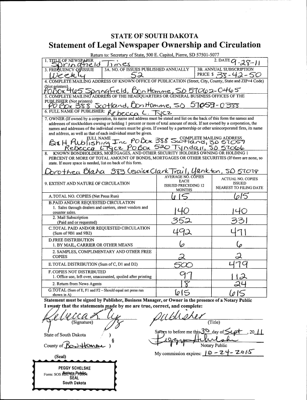 STATE OF SOUTH DAKOTA
Statement of Legal Newspaper Ownership and Circulation
Return to: Secretary of State, 500 E. Capitol, Pierre, SD 57501-5077
1. TITLE OF NEWSPAPER
Springfield Times
2. DATE 9-28-11
3. FREQUENCY OF ISSUE
Weekly
3A. NO. OF ISSUES PUBLISHED ANNUALLY
52
3B. ANNUAL SUBSCRIPTION
PRICE $ 38-42-50
4. COMPLETE MAILING ADDRESS OF KNOWN OFFICE OF PUBLICATION (Street, City, County, State and ZIP+4 Code)
(Not printers)
PO Box 465 Springfield, Bon Homme, SD 57062-0465
5. COMPLETE MAILING ADDRESS OF THE HEADQUARTERS OR GENERAL BUSINESS OFFICES OF THE
PUBLISHER (Not printers)
PO Box 388 Scotland, Bon Homme, SD 57059-0388
6. FULL NAME OF PUBLISHER:
Rebecca L. Tycz
7. OWNER (If owned by a corporation, its name and address must be stated and also
FULL NAME
COMPLETE MAILING ADDRESS
B&H Publishing Inc PO Box 388 Scotland, SD 57059
Rebecca L Tycz PO Box 540 Tyndall, SD 57066
8. KNOWN BONDHOLDERS, MORTGAGES, AND OTHER SECURITY HOLDERS OWNING OR HOLDING 1
PERCENT OR MORE OF TOTAL AMOUNT OF BONDS, MORTGAGES OR OTHER SECURITIES (If there are none, so
state. If more space is needed, list on back of this form.
9. EXTENT AND NATURE OF CIRCULATION
AVERAGE NO. COPIES
EACH ISSUED
PRECEDING 12
MONTHS
ACTUAL NO. COPIES
ISSUED
NEAREST TO FILING DATE
A. TOTAL NO. COPIES (Net Press Run)
615 615
B. PAID AND/OR REQUESTED CIRCULATION
1. Sales through dealers and carriers, street vendors and
counter sales.
140 140
2. Mail Subscription
(Paid and or requested)
352 331
C. TOTAL PAID AND/OR REQUESTED CIRCULATION
(Sum of 9B1 and 9B2)
492 471
D. FREE DISTRIBUTION
1. BY MAIL, CARRIER OR OTHER MEANS
6 6
2. SAMPLES, COMPLIMENTARY AND OTHER FREE
COPIES
2 2
E. TOTAL DISTRIBUTION (Sum of C, D1 and D2)
500 479
F. COPIES NOT DISTRIBUTED
1. Office use, left over, unaccounted, spoiled after printing
97 112
2. Return from News Agents
18 24
G. TOTAL (Sum of E, F1 and F2 - Should equal net press run
shown in A)
615 615
Statement must be signed by Publisher, Business Manager, or Owner in the presence of a Notary Public
I swear that the statements made by me are true, correct, and complete:
Rebecca L Tycz
publisher
(Signature)
(Title)
State of South Dakota )
County of Bon Homme )
Sworn to before me this 30 day of Sept 2011
Notary Public
My commission expires: 10-24-2015
(Seal)
PEGGY SCHELSKE
Notary Public
SEAL
South Dakota